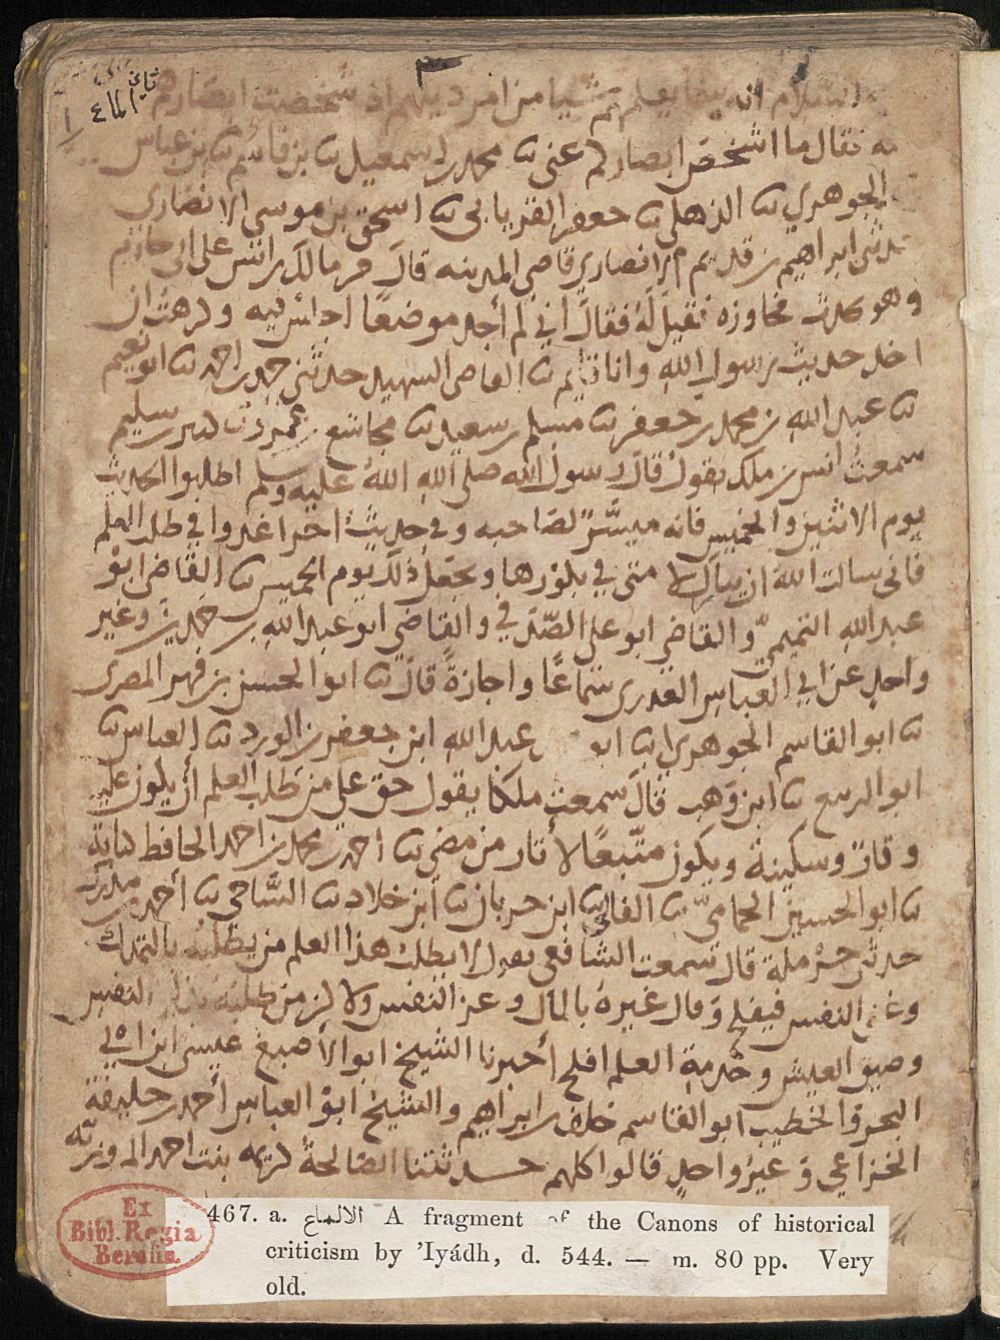 السلام انه بينما يعلمهم شيا من امر دينهم اذ شخصت ابصارهم
فقال ما اشخص ابصاركم عني ثنا محمد بن اسمعيل ثنا بن قاسم ثنا بن عباس
الجوهري ثنا الذهلي ثنا جعفر الفريابي ثنا اسحق بن موسى الانصاري
حدثني ابراهيم بن الانصاري قاضي المدينه قال مر مالك بن انس على ابي حازم
وهو يحدث فجاوزه فقيل له فقال اني لم أجد موضعا اجلس فيه وكرهت ان
اخذ حديث رسول الله وانا قائم ثنا القاضي الشهيد حدثني حمد بن احمد ثنا ابو نعيم
ثنا عبد الله بن محمد بن جعفر ثنا مسلم بن سعيد ثنا مجاشع بن عمرو ثنا سليم
سمعت انس بن ملك يقول قال رسول الله صلى الله عليه وسلم اطلبوا الحديث
يوم الاثنين والخميس فانه ميسر لصاحبه وفي حديث اخر اغدوا في طلب العلم
فاني سالت الله ان يبارك لامتي في بكورها ويجعل ذلك يوم الخميس ثنا القاضي ابو
عبد الله التميمي والقاضي ابو علي الصدفي والقاضي ابو عبد الله بن حمدين وغير
واحد عن ابي العباس العذري سماعا واجازة قال ثنا ابو الحسن بن فهر المصري
ثنا ابو القاسم الجوهري ثنا ابو عبد الله ابن جعفر بن الورد ثنا العباس ثنا
ابو الربيع ثنا ابن وهب قال سمعت ملكا يقول حق على من طلب العلم أن يكون عليه
وقار وسكينة ويكون متبعا لآثار من مضى ثنا احمد بن محمد بن احمد الحافظ كتابة
ثنا ابو الحسين الحمامي ثنا الفالي ثنا ابن خربان ثنا ابن خلاد ثنا الساجي ثنا أحمد بن مدرك
حدثني حرملة قال سمعت الشافعي يقول لا يطلب هذا العلم من يطلبه بالتملك
وغنى النفس فيفلح وقال غيره بالمال وعز النفس ولاكن من طلبه بذلة النفس
وضيق العيش وخدمة العلم افلح أخبرنا الشيخ ابو الأصبغ عيسى ابن ابي
البحر والخطيب ابو القاسم خلف بن ابراهيم والشيخ ابو العباس أحمد بن خليفة
الخزاعي وغير واحد قالوا كلهم حدثتنا الصالحة كريمه بنت احمد المروزيه
Ex
Bibl. Regia
Berolin.
467. a. الالماع A fragment of the Canons of historical
criticism by ’Iyádh, d. 544. — m. 80 pp. Very
old.